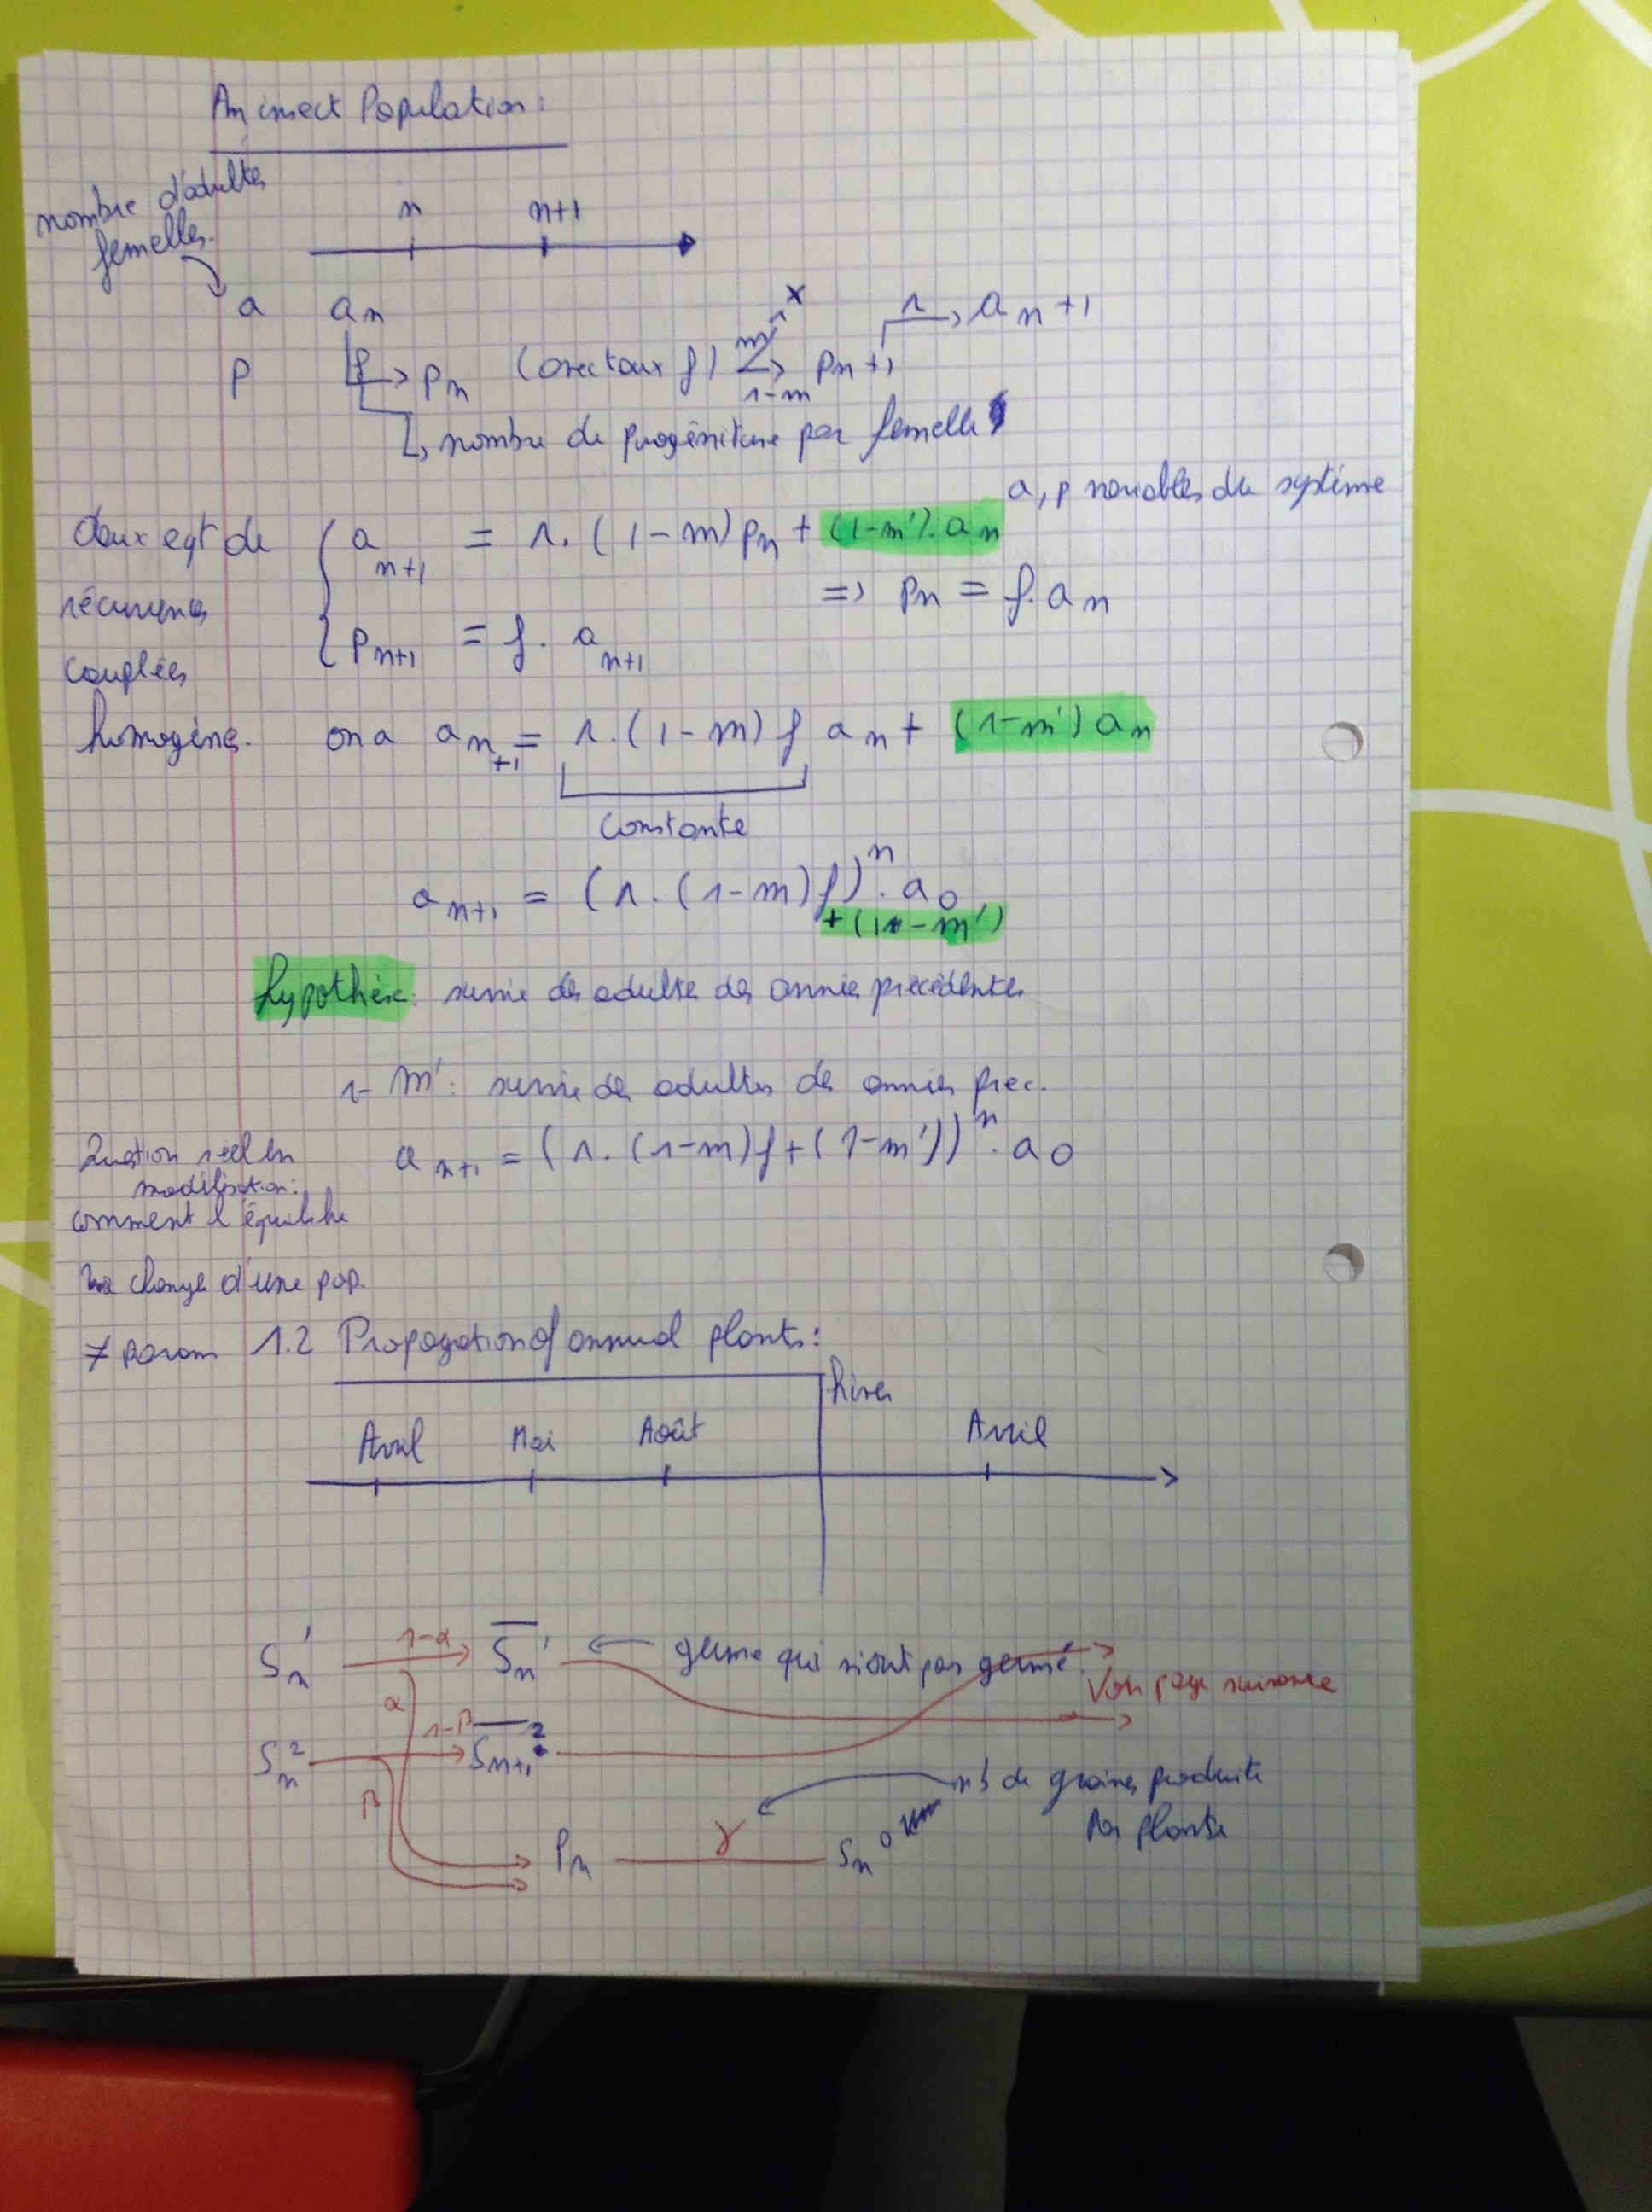 An insect Population :
nombre d'adultes
femelles.
n n+1
a an
x
r → an+1
p f → pn (avec taux f) m 1-m → pn+1
↳ nombre de progéniture par femelle
a, p variables du système
deux eqt de
récurrences
couplées
homogènes.
{ an+1 = r. (1-m) pn + (1-m'). an
=> pn = f. an
{ pn+1 = f. an+1
on a an+1 = r. (1-m) f an + (1-m') an
constante
an+1 = (r. (1-m) f)^n . a0
+ (1-m')
hypothèse : survie des adultes des années précédentes
1- m' : survie des adultes des années prec.
an+1 = (r. (1-m) f + (1-m'))^n . a0
Question réel en
modélisation :
comment l'équilibre
change d'une pop.
≠ param
1.2 Propagation of annual plants :
hiver
Avril Mai Août Avril
Sn^1 1-α → S̅n^1 ← germe qui n'ont pas germé.
Voir page suivante
α
Sn^2 1-β → S̅n+1^2
β
nb de graines produite
par plante
Pn γ Sn^0